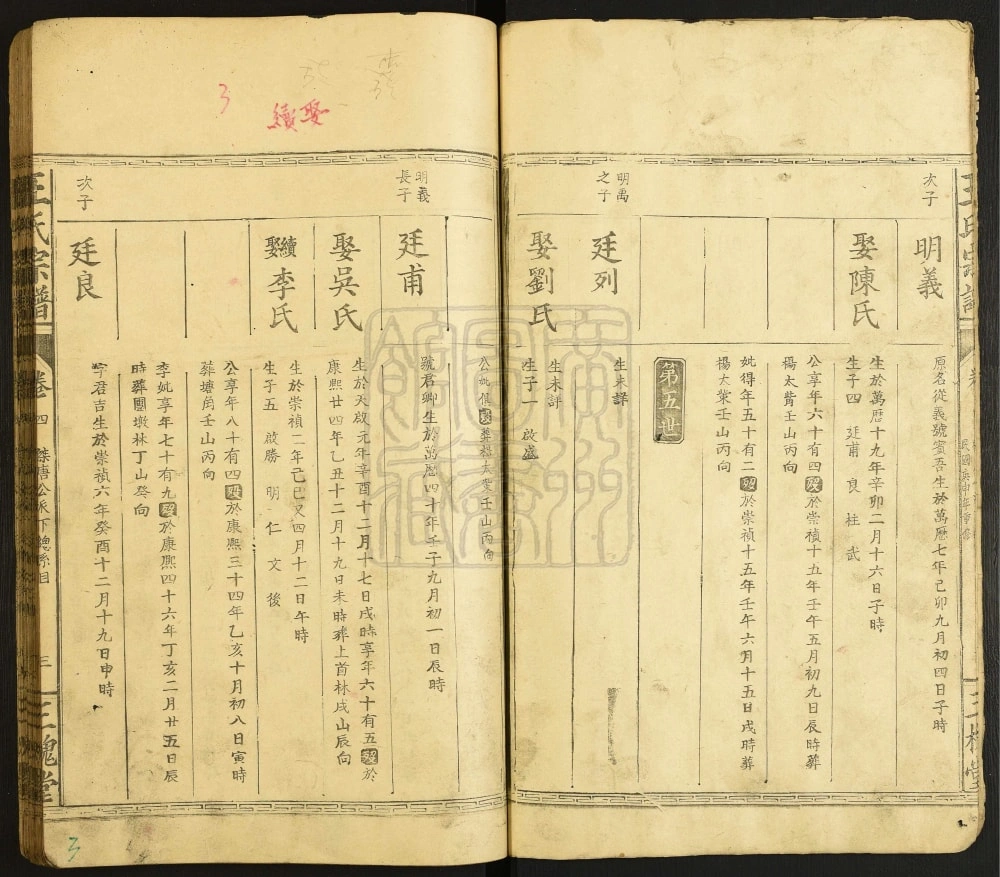 次子
明義
原名從義號賓吾生於萬曆七年己卯九月初四日子時
娶陳氏
生於萬曆十九年辛卯二月十六日子時
生子四 廷甫 良 柱 武
公享年六十有四歿於崇禎十五年壬午五月初九日辰時葬
楊太喾壬山丙向
妣得年五十有二歿於崇禎十五年壬午六月十五日戌時葬
楊大葉壬山丙向
第五世
明禹
之子
廷列
生未詳
娶劉氏
生未詳
生子一 啟盛
公妣俱歿葬楊太 壬山丙向
明義
長子
廷甫
號君卿生於萬曆四十年壬子九月初一日辰時
娶吳氏
生於天啟元年辛酉十二月十七日戌時享年六十有五歿於
康熙廿四年乙丑十二月十九日未時葬上首林戌山辰向
續娶李氏
生於崇禎二年己巳又四月十二日午時
生子五 啟勝 明 仁 文 後
公享年八十有四歿於康熙三十四年乙亥十月初八日寅時
葬塘角壬山丙向
李妣享年七十有九歿於康熙四十六年丁亥二月廿五日辰
時葬團墩林丁山癸向
次子
廷良
字君吉生於崇禎六年癸酉十二月十九日申時
王氏宗譜
卷四
公派下總系目
三
三槐堂
續娶
3
3